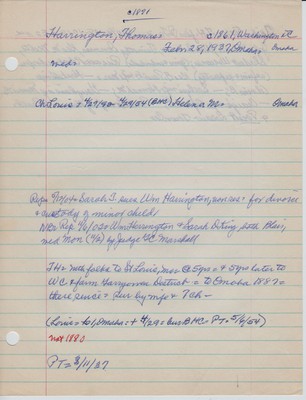 c1881
Harrington, Thomas c1861, Washington DC
Feb 28, 1937, Omaha Omaha
meds
Ch Louis = 4/29/40 4/29/54 (BHC) Helena M. Omaha
Rep 9/10/04 Sarah J. sues Wm Harington, non res: for divorce
& custody of minor childs
NBs Rep 9/6/02 Wm Herrington & Sarah Diting both Blair,
med Mon by Judge Marshall
TH = with folks to St Louis, Mo @ 5 yrs = & 5 yrs later to
WC & farm Harrymore District = to Omaha 1887 =
there since = sur by wife & 7 ch -
(Louis = 61, Omaha = + 4/29 = bur BHC = PT = 5/6/54)
not 1880
PT = 3/11/37